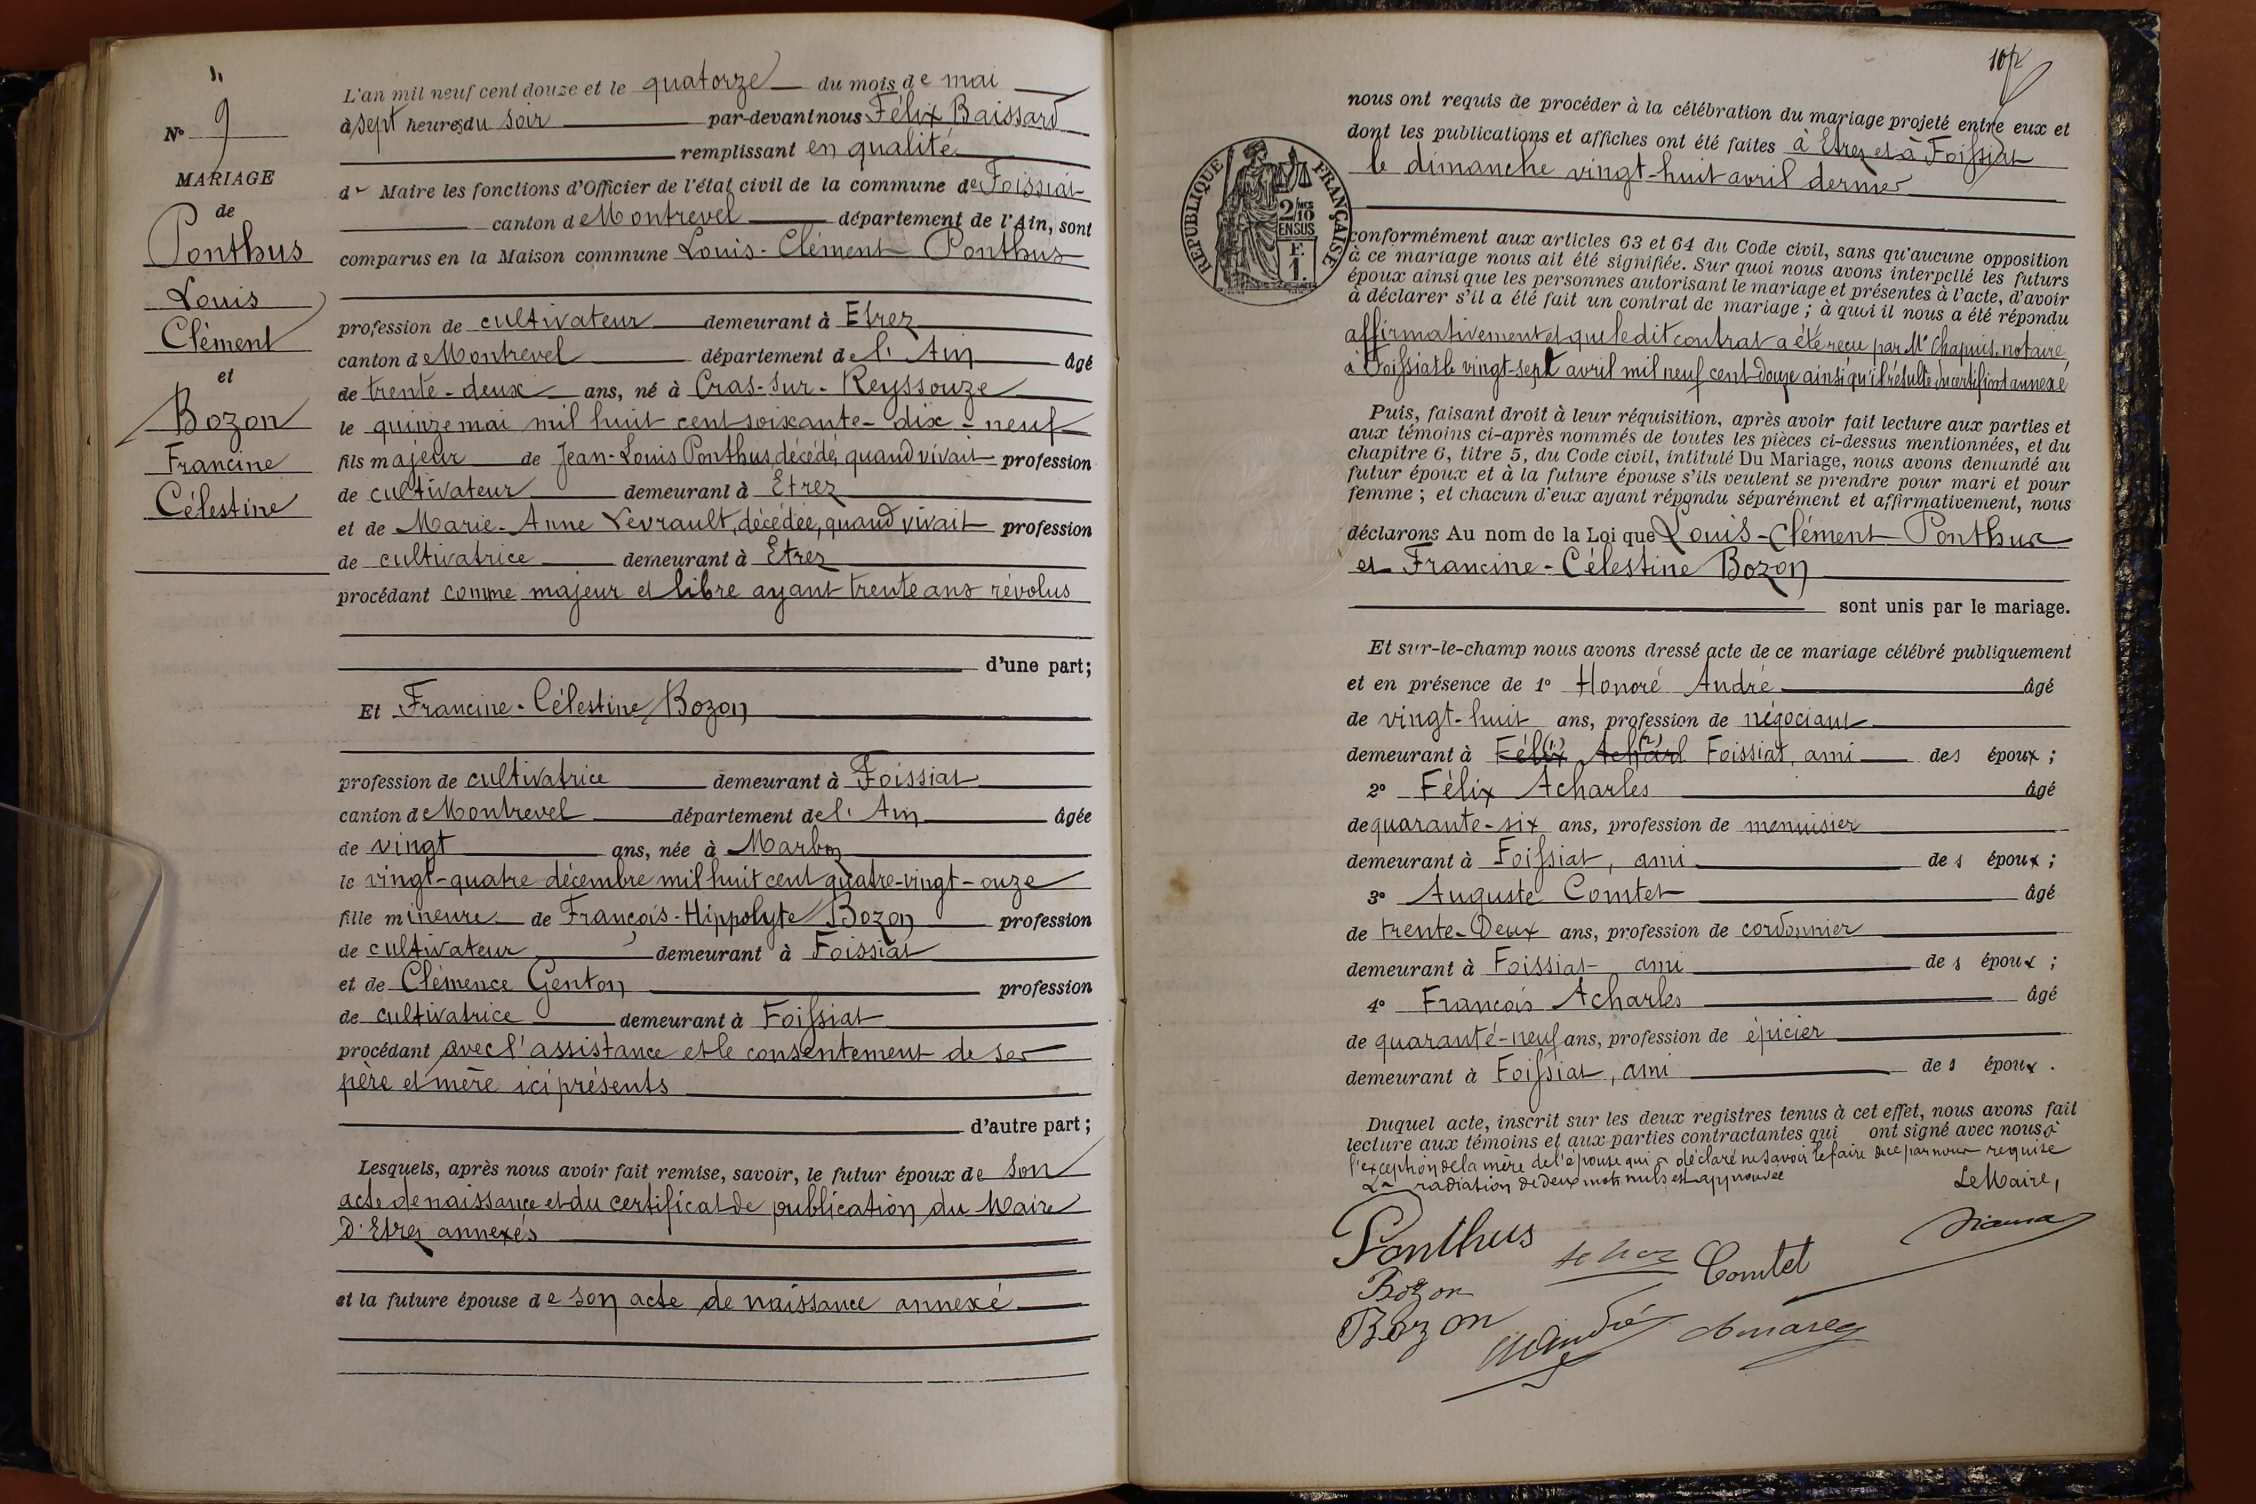 N° 9
MARIAGE
de
Ponthus
Louis
Clément
et
Bozon
Francine
Célestine
L'an mil neuf cent douze et le quatorze du mois de mai
à sept heures du soir par-devant nous Félix Baissard
remplissant en qualité
de Maire les fonctions d'Officier de l'état civil de la commune de Foissiat
canton de Montrevel département de l'Ain, sont
comparus en la Maison commune Louis-Clément Ponthus
profession de cultivateur demeurant à Etrez
canton de Montrevel département de l'Ain âgé
de trente-deux ans, né à Cras-sur-Reyssouze
le quinze mai mil huit cent soixante-dix-neuf
fils majeur de Jean-Louis Ponthus, décédé, quand vivait profession
de cultivateur demeurant à Etrez
et de Marie-Anne Levrault, décédée, quand vivait profession
de cultivatrice demeurant à Etrez
procédant comme majeur et libre ayant trente ans révolus
d'une part;
Et Francine-Célestine Bozon
profession de cultivatrice demeurant à Foissiat
canton de Montrevel département de l'Ain âgée
de vingt ans, née à Marboz
le vingt-quatre décembre mil huit cent quatre-vingt-onze
fille mineure de François-Hippolyte Bozon profession
de cultivateur demeurant à Foissiat
et de Clémence Genton profession
de cultivatrice demeurant à Foissiat
procédant avec l'assistance et le consentement de ses
père et mère ici présents
d'autre part;
Lesquels, après nous avoir fait remise, savoir, le futur époux de son
acte de naissance et du certificat de publication du Maire
d'Etrez annexés
et la future épouse de son acte de naissance annexé
nous ont requis de procéder à la célébration du mariage projeté entre eux et
dont les publications et affiches ont été faites à Etrez et à Foissiat
le dimanche vingt-huit avril dernier
RÉPUBLIQUE FRANÇAISE
2/10 MES
EN SUS
F.
1.
conformément aux articles 63 et 64 du Code civil, sans qu'aucune opposition
à ce mariage nous ait été signifiée. Sur quoi nous avons interpellé les futurs
époux ainsi que les personnes autorisant le mariage et présentes à l'acte, d'avoir
à déclarer s'il a été fait un contrat de mariage ; à quoi il nous a été répondu
affirmativement et que ledit contrat a été reçu par Me Chapuis, notaire
à Foissiat le vingt-sept avril mil neuf cent douze ainsi qu'il résulte du certificat annexé
Puis, faisant droit à leur réquisition, après avoir fait lecture aux parties et
aux témoins ci-après nommés de toutes les pièces ci-dessus mentionnées, et du
chapitre 6, titre 5, du Code civil, intitulé Du Mariage, nous avons demandé au
futur époux et à la future épouse s'ils veulent se prendre pour mari et pour
femme ; et chacun d'eux ayant répondu séparément et affirmativement, nous
déclarons Au nom de la Loi que Louis-Clément Ponthus
et Francine-Célestine Bozon
sont unis par le mariage.
Et sur-le-champ nous avons dressé acte de ce mariage célébré publiquement
et en présence de 1° Honoré André âgé
de vingt-huit ans, profession de négociant
demeurant à Félix (1) Achard (2) Foissiat, ami des époux ;
2° Félix Acharles âgé
de quarante-six ans, profession de menuisier
demeurant à Foissiat, ami des époux ;
3° Auguste Comtet âgé
de trente-deux ans, profession de cordonnier
demeurant à Foissiat ami des époux ;
4° François Acharles âgé
de quarante-neuf ans, profession de épicier
demeurant à Foissiat, ami des époux.
Duquel acte, inscrit sur les deux registres tenus à cet effet, nous avons fait
lecture aux témoins et aux parties contractantes qui ont signé avec nous à
l'exception de la mère de l'épouse qui a déclaré ne savoir le faire de ce par nous requise
La radiation de deux mots nuls est approuvée
Le Maire,
Ponthus
Comtet
Bozon
Bozon